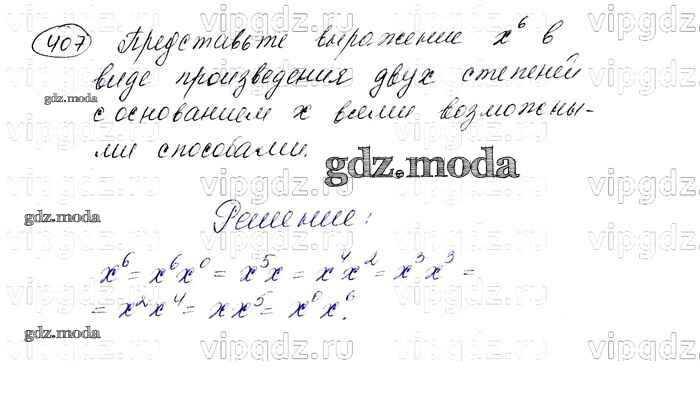 407 Представьте выражение x⁶ в
виде произведения двух степеней
с основанием x всеми возможны-
ми способами.
gdz.moda
gdz.moda
gdz.moda
Решение:
x⁶ = x⁶x⁰ = x⁵x = x⁴x² = x³x³ =
= x²x⁴ = xx⁵ = x⁰x⁶.
gdz.moda
vipgdz vipgdz vipgdz vipgdz